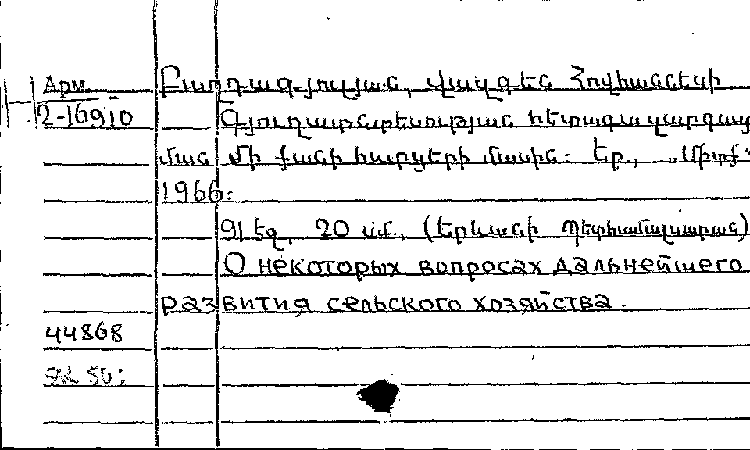 Арм. Բաղդագյուլյան, Վազգեն Հովհաննեսի
2-16910 Գյուղատնտեսության հետագա զարգաց
ման մի քանի հարցերի մասին: Եր., „Միտք"
1966:
91 էջ, 20 սմ, (Երևանի պետհամալսարան)
О некоторых вопросах дальнейшего
развития сельского хозяйства.
44868